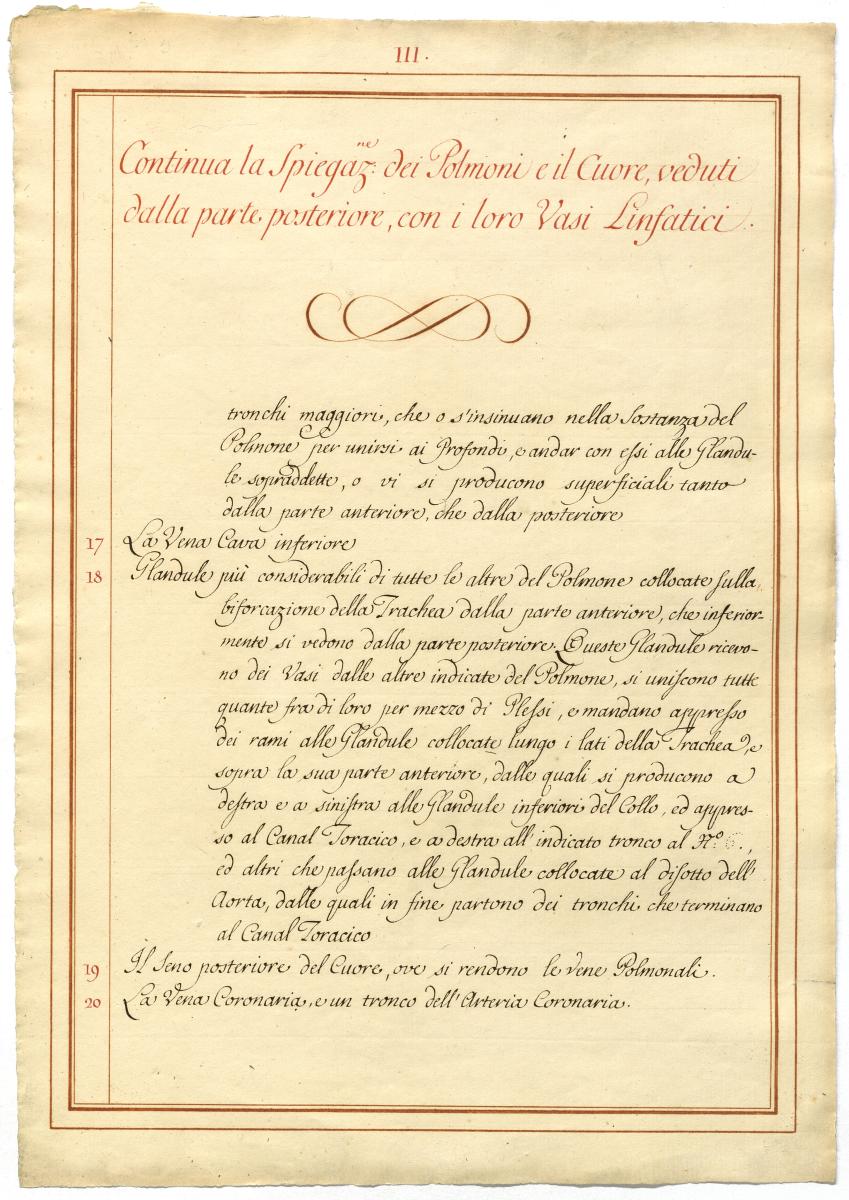 III.
Continua la Spiegaz:ne dei Polmoni e il Cuore, veduti
dalla parte posteriore, con i loro Vasi Linfatici.
tronchi maggiori, che o s'insinuano nella Sostanza del
Polmone per unirsi ai Profondi, e andar con eſsi alle Glandu-
le sopraddette, o vi si producono superficiali tanto
dalla parte anteriore, che dalla posteriore
17 La Vena Cava inferiore
18 Glandule più considerabili di tutte le altre del Polmone collocate ſulla
biforcazione della Trachea dalla parte anteriore, che inferior-
mente si vedono dalla parte posteriore. Queste Glandule ricevo-
no dei Vasi dalle altre indicate del Polmone, si uniſcono tutte
quante fra di loro per mezzo di Pleſsi, e mandano appresso
dei rami alle Glandule collocate lungo i lati della Trachea, e
sopra la sua parte anteriore, dalle quali si producono a
deſtra e a siniſtra alle Glandule inferiori del Collo, ed appres-
so al Canal Toracico, e a destra all'indicato tronco al N.º 6.,
ed altri che paſsano alle Glandule collocate al diſotto dell'
Aorta, dalle quali in fine partono dei tronchi che terminano
al Canal Toracico
19 Il Seno posteriore del Cuore, ove si rendono le vene Polmonali.
20 La Vena Coronaria, e un tronco dell'Arteria Coronaria.